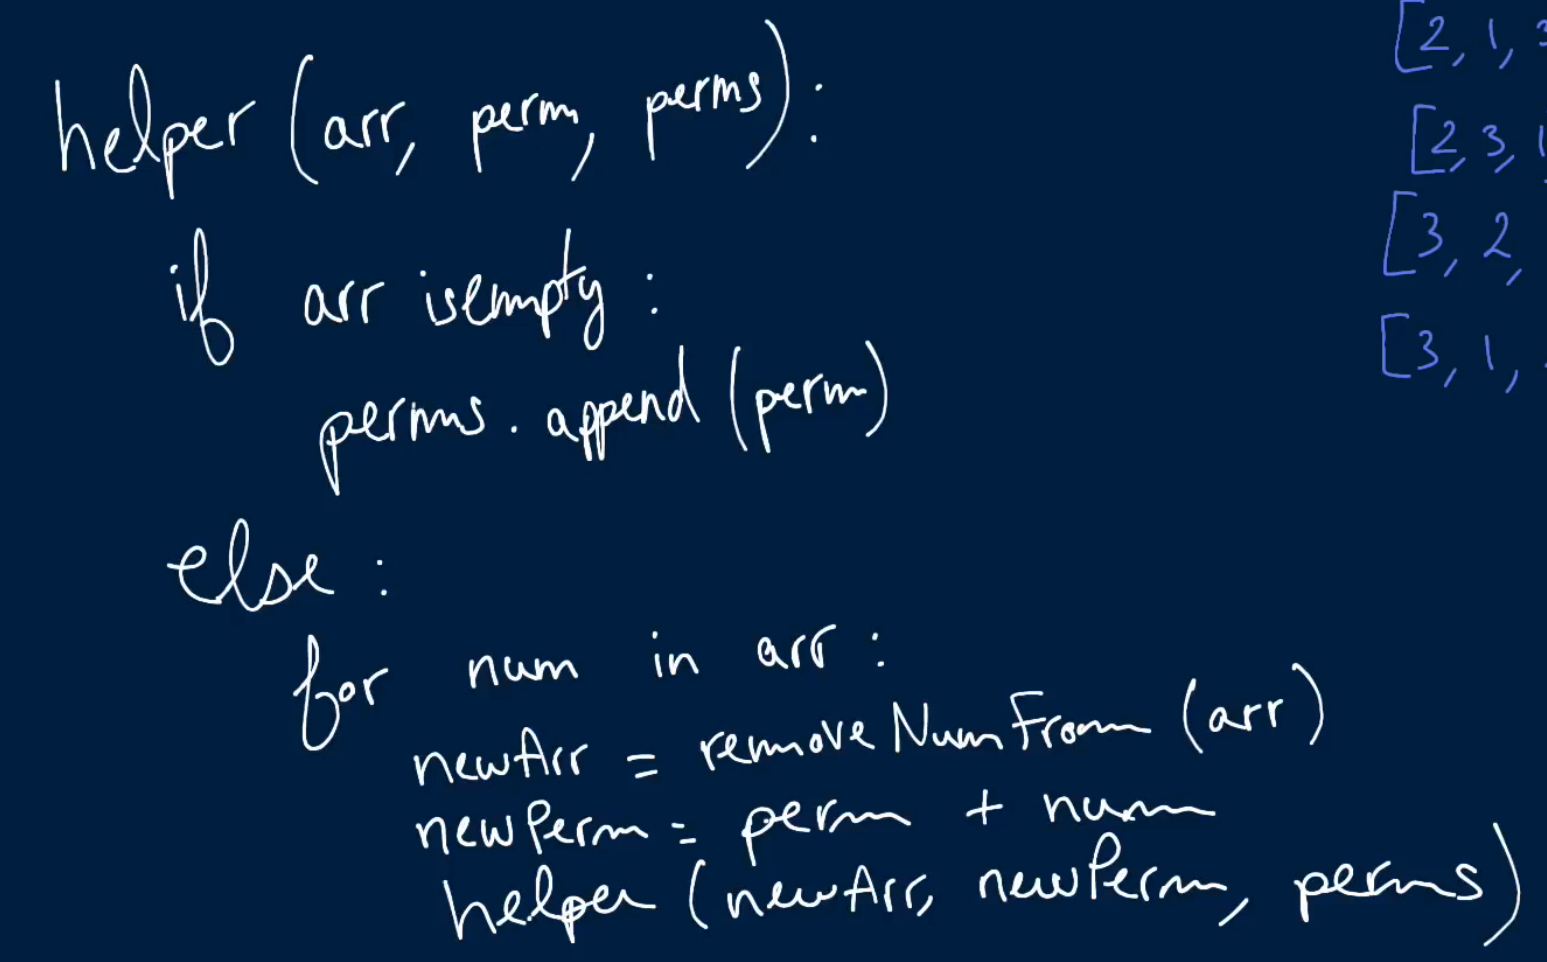 helper (arr, perm, perms):
if arr isempty :
perms. append (perm)
else :
for num in arr :
newArr = removeNumFrom (arr)
newPerm = perm + num
helper (newArr, newPerm, perms)
[2, 1, 3
[2, 3, 1
[3, 2,
[3, 1,